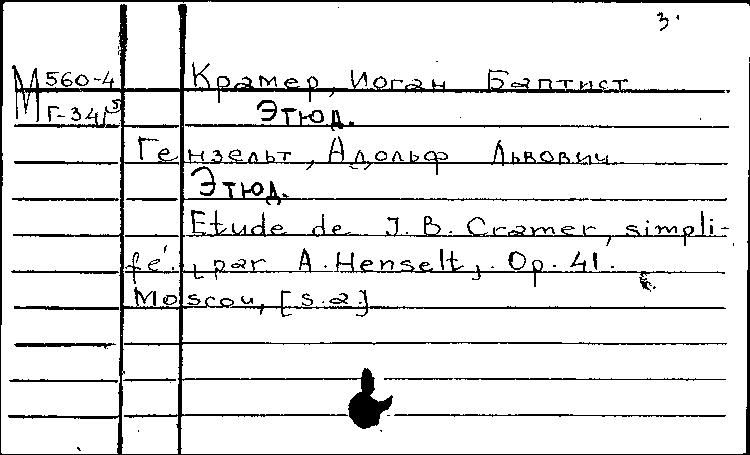 3.
М 560-4 Крамер, Иоган Баптист
Г-341 Этюд.
Гензельт, Адольф Львович
Этюд.
Etude de J. B. Cramer, simpli-
fé. [par A. Henselt]. Op. 41.
Moscou, [s.a.]